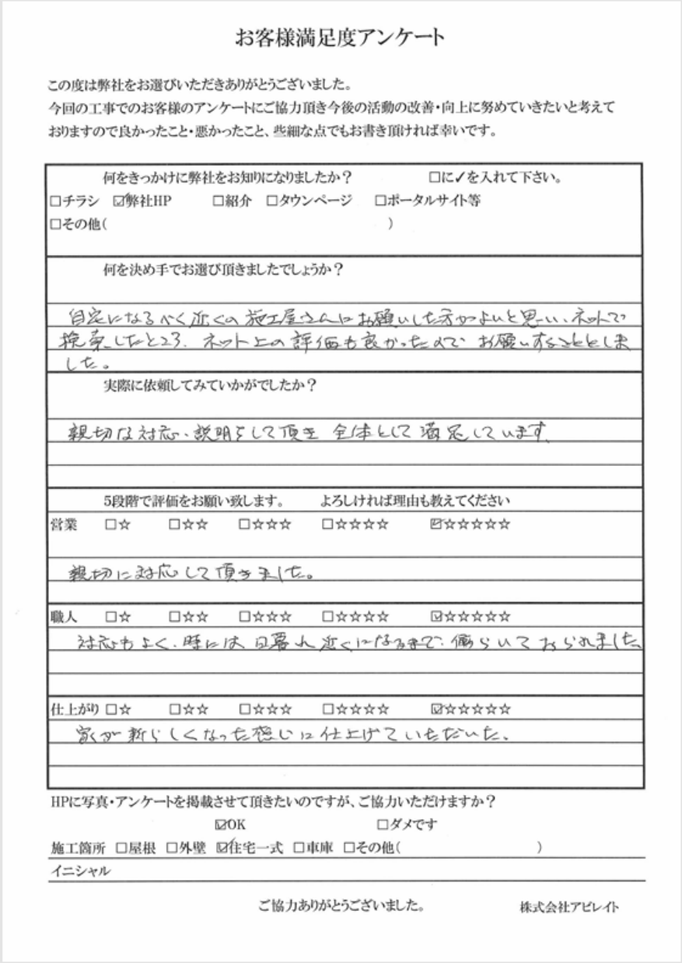 お客様満足度アンケート
この度は弊社をお選びいただきありがとうございました。
今回の工事でのお客様のアンケートにご協力頂き今後の活動の改善・向上に努めていきたいと考えて
おりますので良かったこと・悪かったこと、些細な点でもお書き頂ければ幸いです。
何をきっかけに弊社をお知りになりましたか？ □に✓を入れて下さい。
□チラシ ☑弊社HP □紹介 □タウンページ □ポータルサイト等
□その他( )
何を決め手でお選び頂きましたでしょうか？
自宅になるべく近くの施工屋さんにお願いした方がよいと思い、ネットで
検索したところ、ネット上の評価も良かったので お願いすることとしま
した。
実際に依頼してみていかがでしたか？
親切な対応、説明をして頂き 全体として満足しています。
5段階で評価をお願い致します。 よろしければ理由も教えてください
営業 □☆ □☆☆ □☆☆☆ □☆☆☆☆ ☑☆☆☆☆☆
親切に対応して頂きました。
職人 □☆ □☆☆ □☆☆☆ □☆☆☆☆ ☑☆☆☆☆☆
対応もよく、時には、日暮れ近くになるまで、働らいておられました
仕上がり □☆ □☆☆ □☆☆☆ □☆☆☆☆ ☑☆☆☆☆☆
家が新らしくなった感じに仕上げていただいた。
HPに写真・アンケートを掲載させて頂きたいのですが、ご協力いただけますか？
☑OK □ダメです
施工箇所 □屋根 □外壁 ☑住宅一式 □車庫 □その他( )
イニシャル
ご協力ありがとうございました。 株式会社アビレイト